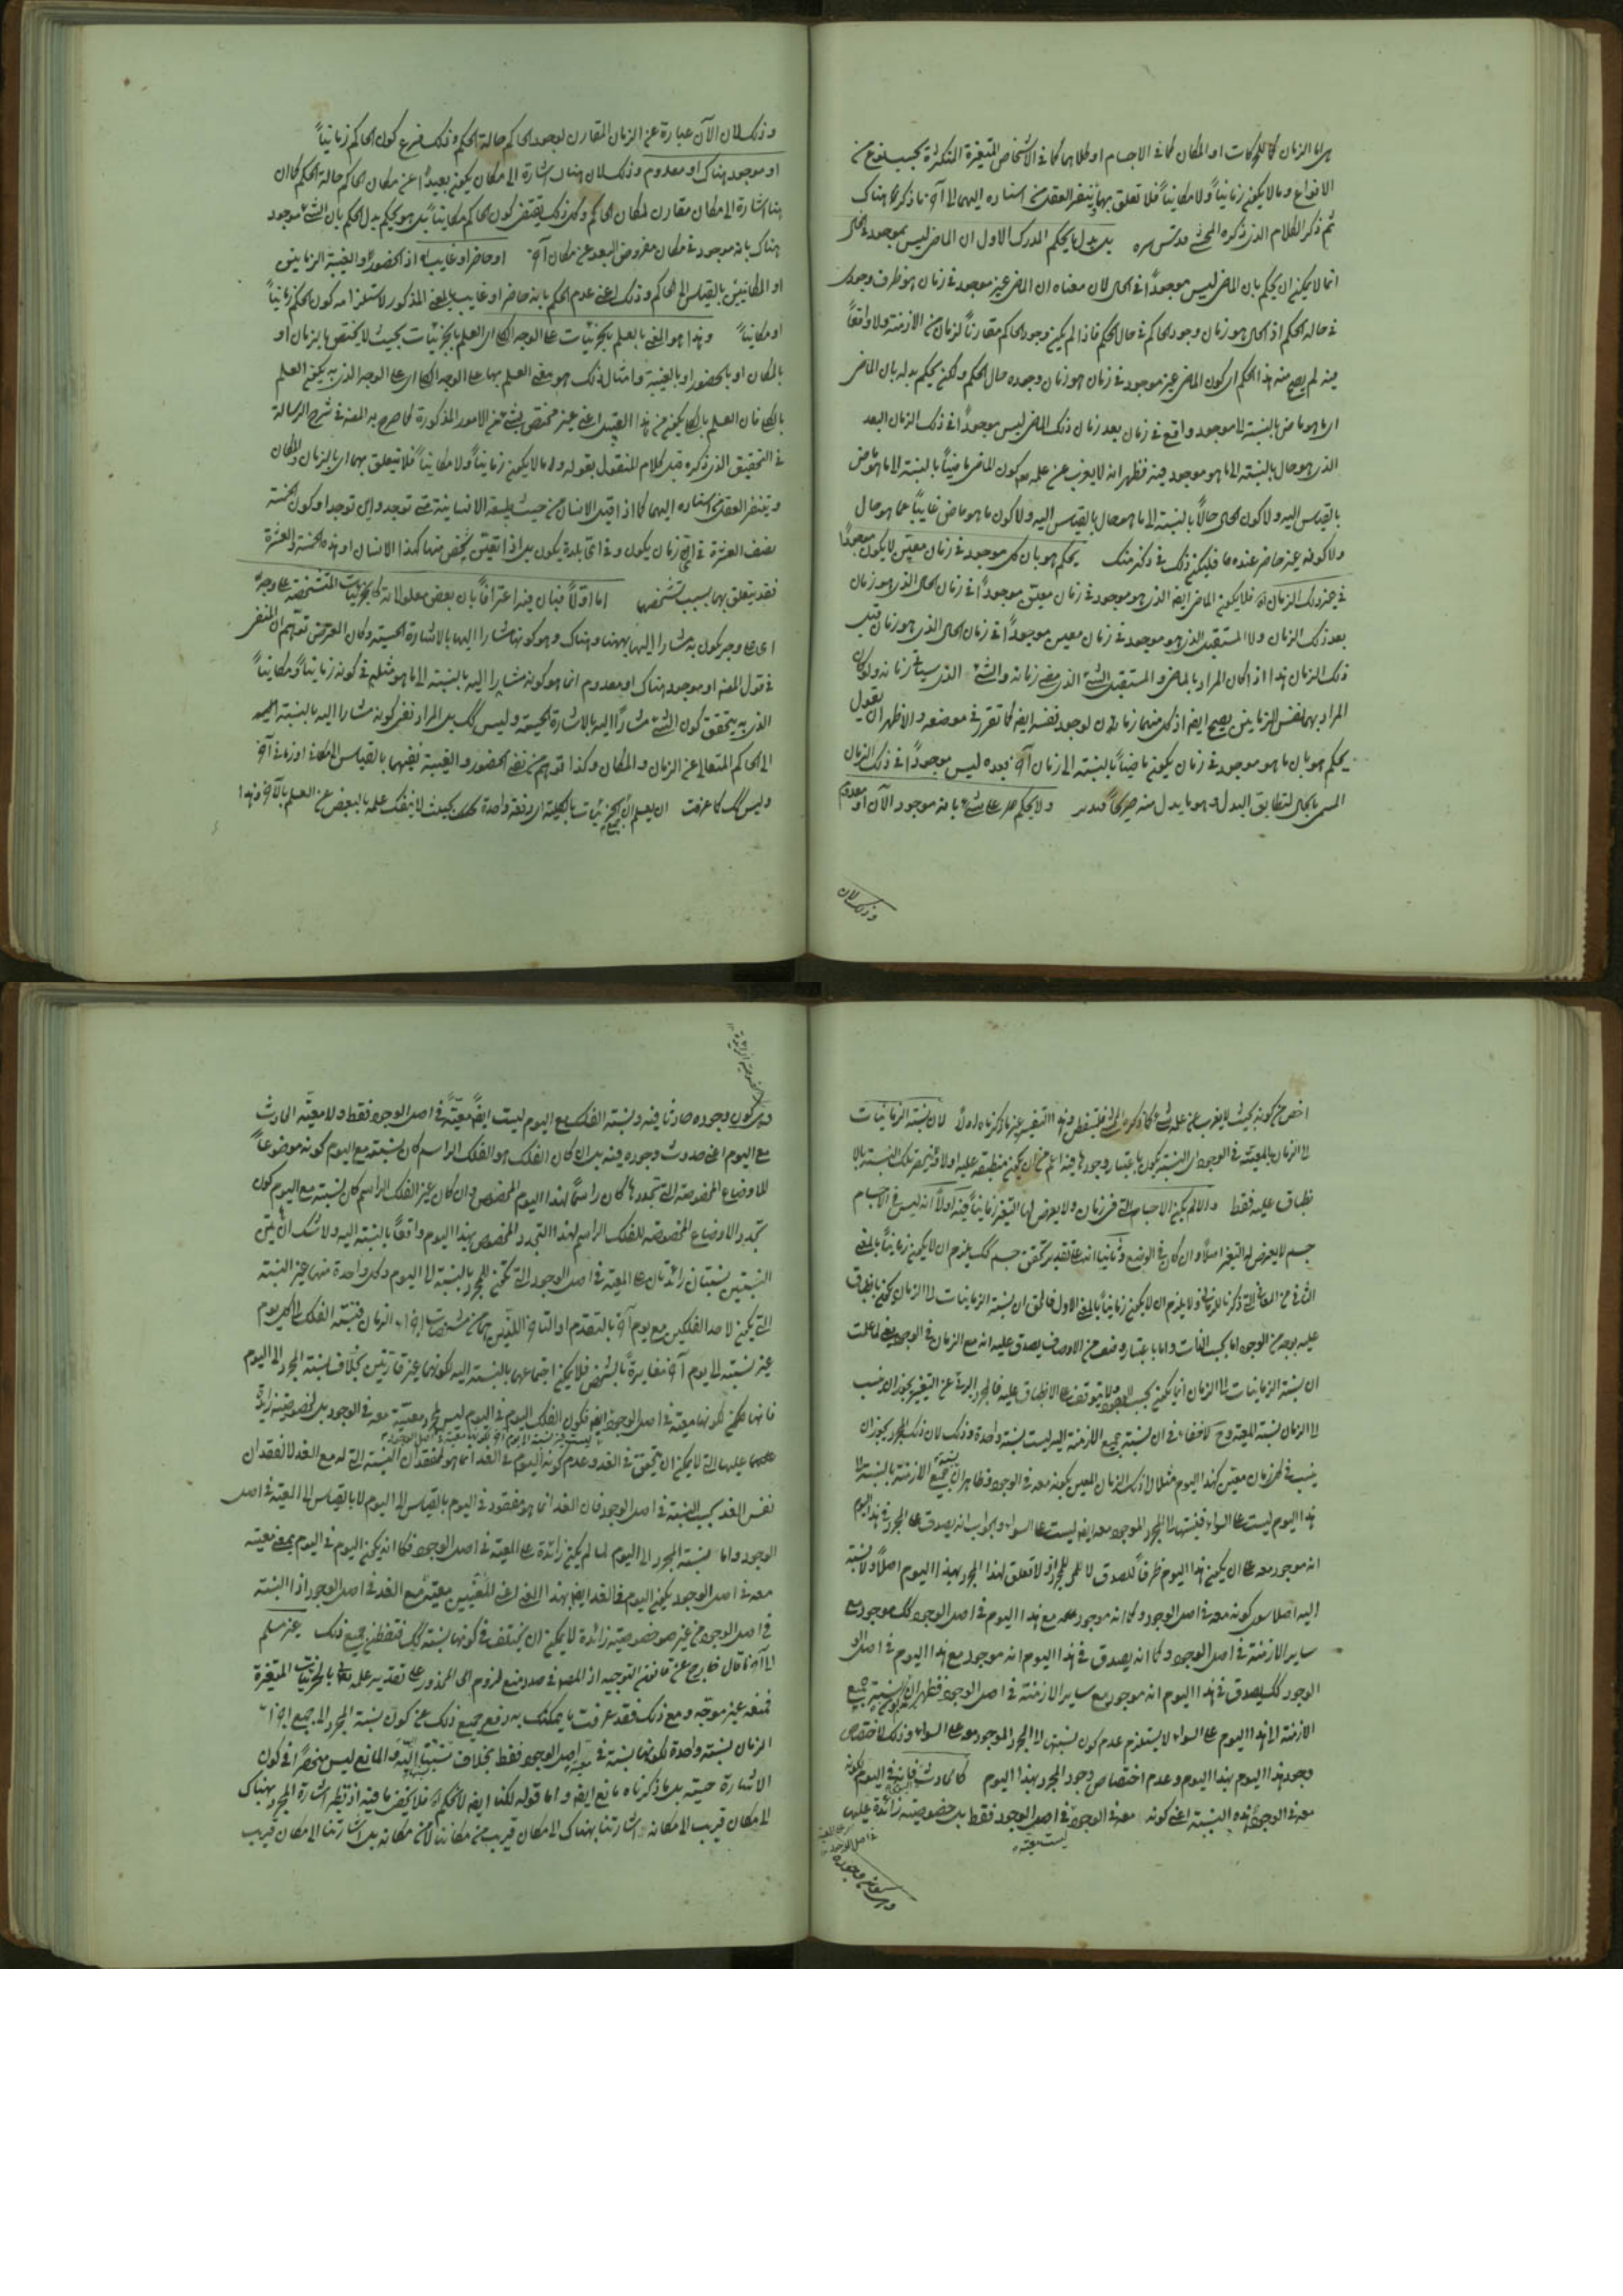 هي اما الزمان كما للحركات او المكان كما في الاجسام او كلاهما كما في الاشخاص المتغيرة المتكثرة بحسب نوع من
الانواع وما لا يكون زمانياً ولا مكانياً فلا تعلق بهما وينفر العقل من اسناده اليهما الى آخر ما ذكره هناك
ثم ذكر الكلام الذي ذكره المحشى قدس سره بل بدل ما يحكم المدرك الاول ان الماضي ليس بموجود في الحال
انما لا يمكن ان يحكم بان الماضي ليس موجوداً في الحال لان معناه ان الماضي غير موجود في زمان هو ظرف وجوده
في حالة الحكم اذ الحال هو زمان وجود الحاكم في حال الحكم فاذا لم يكن وجود الحاكم مقارناً لزمان من الازمنة ولا واقعاً
فيه لم يصح منه هذا الحكم اى كون الماضي غير موجود في زمان هو زمان وجوده حال الحكم ولكن يحكم بدله بان الماضي
اى ما هو ماض بالنسبة الى موجود واقع في زمان بعد زمان ذلك الماضي ليس موجوداً في ذلك الزمان البعد
الذي هو حال بالنسبة الى ما هو موجود فيه فظهر انه لا يعزب عن علمه كون الماضي ماضياً بالنسبة الى ما هو ماض
بالقياس اليه ولا كون الحال حالاً بالنسبة الى ما هو حال بالقياس اليه ولا كون ما هو ماض غايباً عما هو حال
ولا كونه غير حاضر عنده فليكن ذلك في ذكر منك يحكم هو بان كل موجود في زمان معين لا يكون موجوداً
في غير ذلك الزمان فلا يكون الماضي ايضا الذي هو موجود في زمان معين موجوداً في زمان الحال الذي هو زمان
بعد ذلك الزمان ولا المستقبل الذي هو موجود في زمان معين موجوداً في زمان الحال الذي هو زمان قبل
ذلك الزمان هذا اذا كان المراد بالماضي والمستقبل الشئ الذي مضى زمانه والشئ الذي سياتي زمانه ولو كان
المراد بهما نفس الزمانين يصح ايضا اذ كل منهما زمان لوجود نفسه ايضا كما تقرر في موضعه والاظهر ان يقول
يحكم هو بان ما هو موجود في زمان يكون ماضياً بالنسبة الى زمان آخر بعده ليس موجوداً في ذلك الزمان
المسمى بالحال لتطابق البدل وهو ما يدل منه صريحاً فتدبر ولا يحكم على شئ بانه موجود الآن او معدوم
وذلك لان
وذلك لان الآن عبارة عن الزمان المقارن لوجود الحاكم حالة الحكم وذلك فرع كون الحاكم زمانياً
او موجود هناك او معدوم وذلك لان هناك اشارة الى مكان يكون بعيداً عن مكان الحاكم حالة الحكم كما ان
هنا اشارة الى مكان مقارن لمكان الحاكم وكل ذلك يقتضى كون الحاكم مكانياً بل هو يحكم بدل الحكم بان الشئ موجود
هناك بانه موجود في مكان مفروض البعد عن مكان آخر او حاضر او غايب اذ الحضور والغيبة الزمانيتين
او المكانيتين بالقياس الى الحاكم وذلك اعنى عدم الحكم بانه حاضر او غايب بالمعنى المذكور لاستلزامه كون الحاكم زمانياً
او مكانياً وهذا هو المعنى بالعلم بالجزئيات على الوجه الكلى اى العلم بالجزئيات بحيث لا يختص بالزمان او
بالمكان او بالحضور او بالغيبة وامثال ذلك هو معنى العلم بها على الوجه الكلى اى على الوجه الذي به يكون العلم
بالكلى فان العلم بالكلى يكون من هذا القبيل اعنى غير مختص بشئ من الامور المذكورة كما صرح به المصنف في شرح الرسالة
في التحقيق الذي ذكره قبل كلام المنقول بقوله وما لا يكون زمانياً ولا مكانياً فلا تتعلق بهما اى بالزمان والمكان
وينفر العقل من اسناده اليهما كما اذا قيل الانسان من حيث طبيعة الانسانية متى توجد واين توجد او كون الخمسة
نصف العشرة في اى زمان يكون وفي اى بلدة يكون بل اذا تعين شخص منها كهذا الانسان او هذه الخمسة والعشرة
فقد يتعلق بهما بسبب تشخصها اما اولاً فبان هذا اعترافاً بان بعض معلولاته كالجزئيات المتشخصة على وجه
اى على وجه يكون به مشارا اليها بههنا وهناك وهو كونها مشارا اليها بالاشارة الحسية وكان المعترض توهم ان المنفى
في قول المصنف او موجود هناك او معدوم انما هو كونه مشاراً اليه بالنسبة الى ما هو مثله في كونه زمانياً ومكانياً
الذي به يتحقق كون الشئ مشاراً اليه بالاشارة الحسية وليس كك بل المراد نفى كونه مشارا اليه بالنسبة
الى الحاكم المتعالى عن الزمان والمكان وكذا توهم من نفى الحضور والغيبة نفيهما بالقياس الى مكانى او زمانى آخر
وليس كك كما عرفت ان يعلم الجزئيات بالكلية اى دفعة واحدة بحيث لا ينفك علمه بالبعض عن العلم بالآخر وهذا
اخص من كونه بحيث لا يعزب عن علمه شئ كما ذكره المحشى فليتفطن وهذا التفسير غير ما ذكرناه اولاً لان نسبة الزمانيات
الى الزمان بالمعية في الوجود اى النسبة يكون باعتبار وجودها فيه اعم من ان يكون منطبقة عليه اولا ولا ينحصر تلك النسبة بالا
نطباق عليه فقط والا لم يكن الاجسام التي في زمان ولا يعرض لها التغير زمانياً فيه اولاً انه ليس في الاجسام
جسم لا يعرض له التغير اصلاً وان كان في الوضع وثانيا انه على تقدير تحقق جسم كك يلزم ان لا يكون زمانياً بالمعنى
الثانى من المعانى التي ذكرنا للزمانى ولا يلزم ان لا يكون زمانياً بالمعنى الاول فالحق ان نسبة الزمانيات الى الزمان يكون بانطباق
عليه بوجه من الوجوه اما بحسب الذات واما باعتبار وصف من الاوصاف يصدق عليه انه مع الزمان في الوجود لما علمت
ان نسبة الزمانيات الى الزمان انما يكون بحسب الوجود ولا يتوقف على الانطباق عليه فالمجرد البرئ عن التغير يجوز ان ينسب
الى الزمان نسبة المعية وح لا خفاء في ان نسبة جميع الازمنة اليه ليست نسبة واحدة وذلك لان ذلك المجرد يجوز ان
ينسب في كل زمان معين كهذا اليوم مثلا الى ذلك الزمان المعين بكونه معه في الوجود وظاهر ان نسبة جميع الازمنة بالنسبة الى
هذا اليوم ليست على السواء فنسبتها الى المجرد الموجود معه ايضا ليست على السواء والجواب انه يصدق على المجرد في هذا اليوم
انه موجود معه على ان يكون هذا اليوم ظرفاً للصدق لا للمجرد اذ لا تعلق لهذا المجرد بهذا اليوم اصلاً ولا نسبة
اليه اصلا سوى كونه معه في اصل الوجود وكما انه موجود مع هذا اليوم في اصل الوجود كك موجود مع
ساير الازمنة في اصل الوجود وكما انه يصدق في هذا اليوم انه موجود مع هذا اليوم في اصل
الوجود كك يصدق في هذا اليوم انه موجود مع ساير الازمنة في اصل الوجود فظهر ان نسبة جميع
الازمنة الى هذا اليوم على السواء لا يستلزم عدم كون نسبتها الى المجرد الموجود معه على السواء وذلك لاختصاص
وجود هذا اليوم بهذا اليوم وعدم اختصاص وجود المجرد بهذا اليوم كالحادث فانه في اليوم
معه في الوجود هذه النسبة اعنى كونه معه في الوجود في اصل الوجود فقط بل خصوصية زائدة عليها
ليست معية
وهي كون وجوده
وهي كون وجوده حادثا فيه ونسبة الفلك مع اليوم ليست ايضا معية في اصل الوجود فقط ولا معية الحادث
مع اليوم اعنى حدوث وجوده فيه بل ان كان الفلك هو الفلك الراسم كان نسبته مع اليوم كونه موضوعاً
للاوضاع المخصوصة التي تجددها كان راسماً لهذا اليوم المخصوص وان كان غير الفلك الراسم كان نسبته مع اليوم كون
تجدد الاوضاع المخصوصة للفلك الراسم لهذا التجدد المخصوص بهذا اليوم واقعاً بالنسبة اليه ولا شك ان هاتين
النسبتين نسبتان زائدتان على المعية في اصل الوجود التي تكون للمجرد بالنسبة الى اليوم وكل واحدة منهما غير النسبة
التي يكون لاحد الفلكين مع يوم آخر بالتقدم او التاخر اللذين هما من مشخصات اجزاء الزمان فنسبة الفلك الى كل يوم
غير نسبته الى يوم آخر مغايرة بالشخص فلا يمكن اجتماعهما بالنسبة اليه لكونهما غير قارتين بخلاف نسبة المجرد الى اليوم
فانها ممكن لكونها معية في اصل الوجود ايضا فكون الفلك اليوم في اليوم ليس مجرد معيته معه في الوجود بل لخصوصية زائدة
عليها التي لا يمكن ان يتحقق في الغد وعدم كونه اليوم في الغد انما هو لفقدان النسبة التي له مع الغد لا لفقدان
نفس الغد بحسب النسبة في اصل الوجود فان الغد انما هو مفقود في اليوم بالقياس الى اليوم لا بالقياس الى المعية في اصل
الوجود واما نسبة المجرد الى اليوم لما لم يكن زائدة على المعية في اصل الوجود فكما انه يكون اليوم في اليوم بمعنى معيته
معه في اصل الوجود يكون اليوم في الغد ايضا بهذا المعنى اعنى معيته مع الغد في اصل الوجود اذ النسبة
في اصل الوجود من غير خصوصية زائدة لا يمكن ان يختلف في كونها نسبة كك فتفطن جميع ذلك غير مسلم
الى آخر ما قال خارج عن قانون التوجيه اذ المصنف في صدد منع لزوم المحذور على تقدير علمه تعالى بالجزئيات المتغيرة
فمنعه غير موجه ومع ذلك فقد عرفت ما يمكنك به دفع جميع ذلك من كون نسبة المجرد الى جميع اجزاء
الزمان نسبة واحدة لكونها نسبة في اصل الوجود فقط بخلاف نسبتنا اليه والمانع ليس منحصراً في كون
الاشارة حسية بل ما ذكرناه مانع ايضا واما قوله لكنا ايضا لا نحكم فلا يخفى ما فيه اذ نظير اشارة المجرد بهناك
الى مكان قريب الى مكانه اشارتنا بهناك الى مكان قريب من مكاننا لا من مكانه بل اشارتنا الى مكان قريب